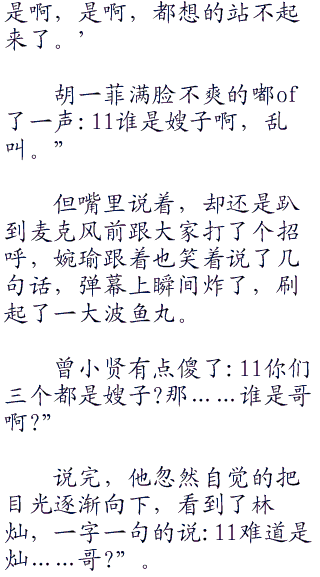 是啊，是啊，都想的站不起
来了。’
胡一菲满脸不爽的嘟of
了一声: 11谁是嫂子啊，乱
叫。”
但嘴里说着，却还是趴
到麦克风前跟大家打了个招
呼，婉瑜跟着也笑着说了几
句话，弹幕上瞬间炸了，刷
起了一大波鱼丸。
曾小贤有点傻了: 11你们
三个都是嫂子?那……谁是哥
啊?”
说完，他忽然自觉的把
目光逐渐向下，看到了林
灿，一字一句的说: 11难道是
灿……哥?”。